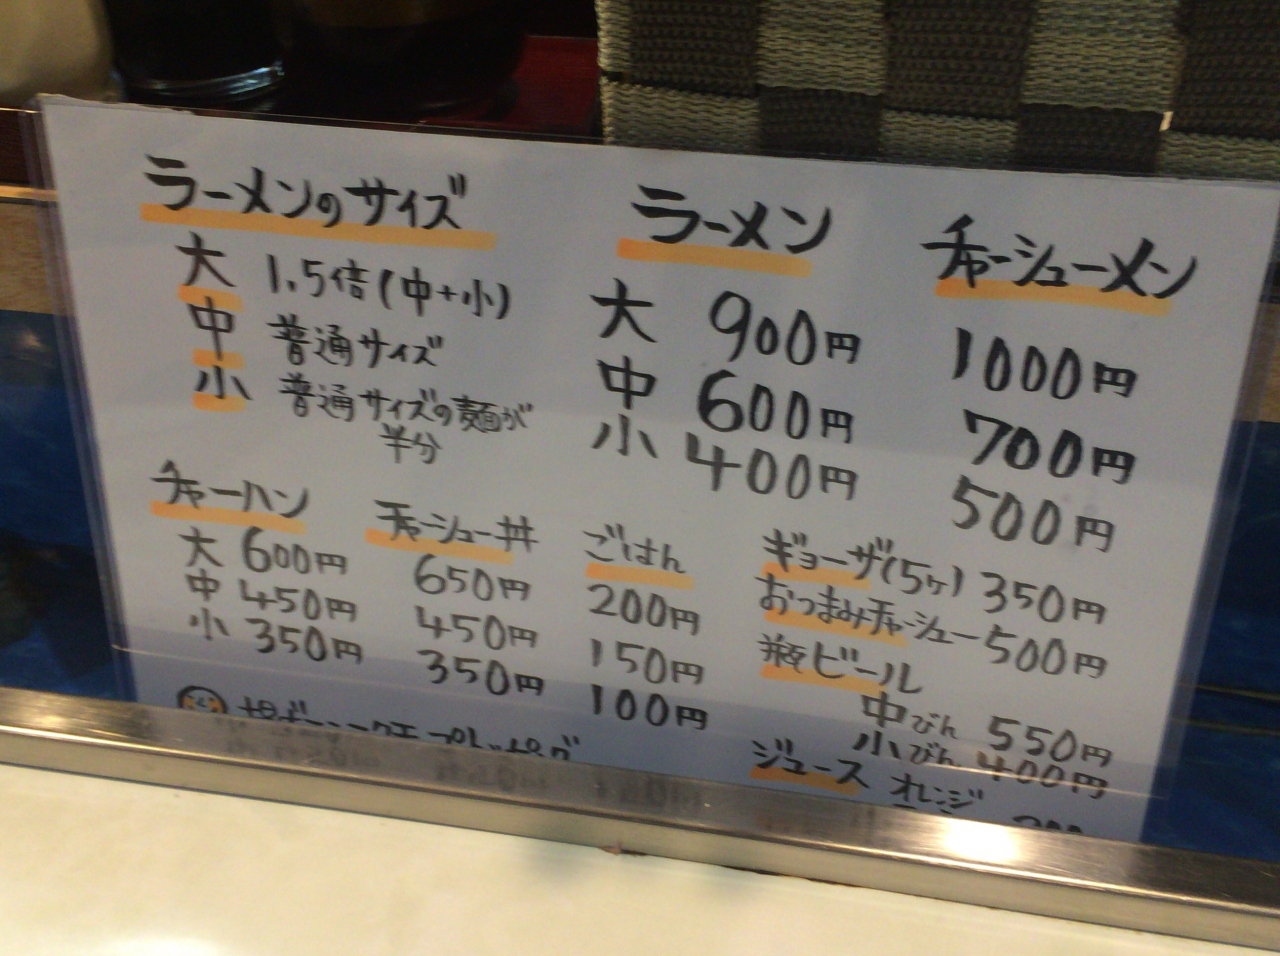 ラーメンのサイズ
大 1.5倍(中+小)
中 普通サイズ
小 普通サイズの麺が
半分
ラーメン チャーシューメン
大 900円 1000円
中 600円 700円
小 400円 500円
チャーハン チャーシュー丼 ごはん
大 600円 650円 200円
中 450円 450円 150円
小 350円 350円 100円
ギョーザ(5ヶ) 350円
おつまみチャーシュー 500円
瓶ビール
中びん 550円
小びん 400円
ジュース オレンジ